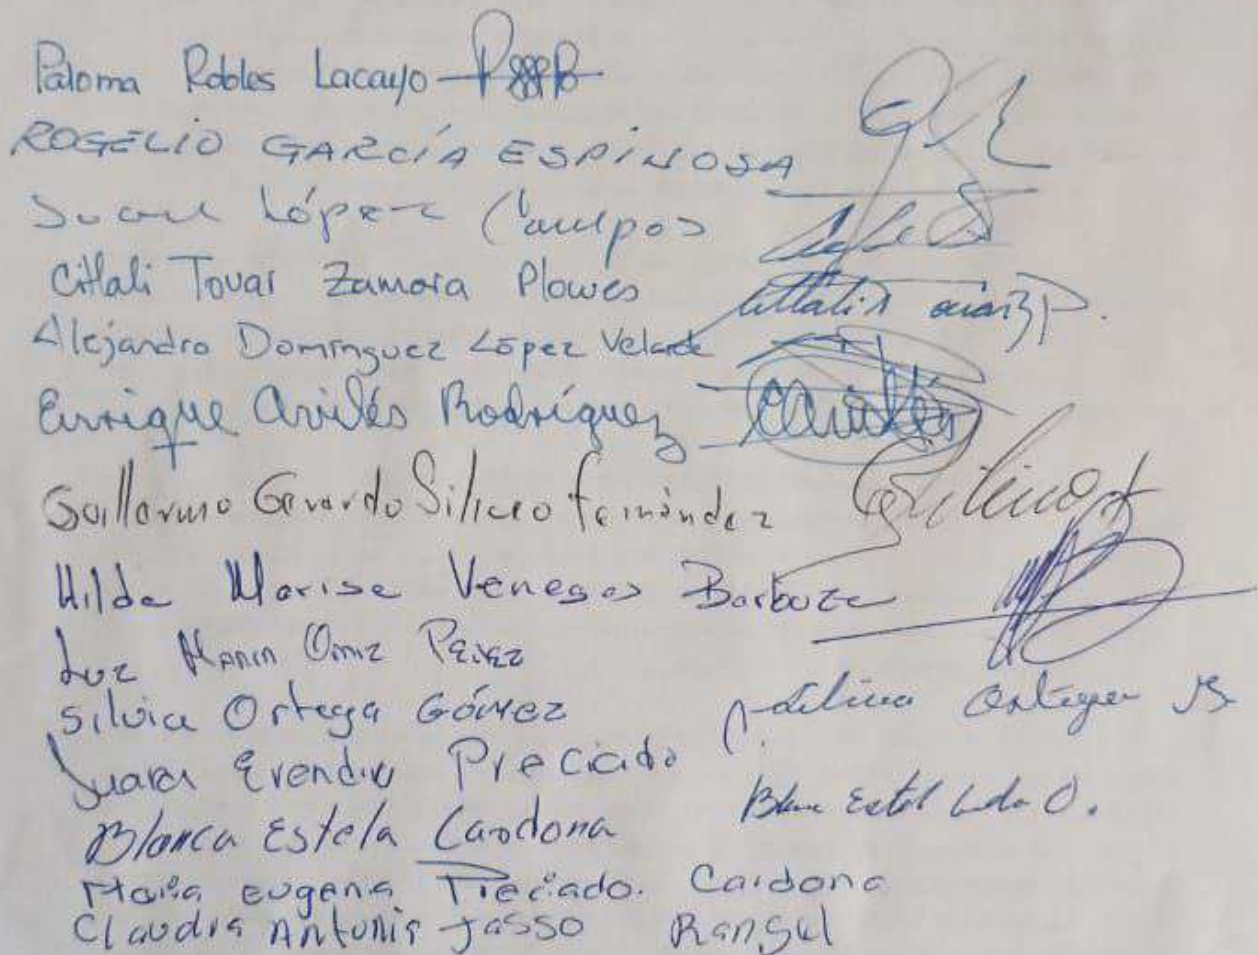 Paloma Robles Lacayo
ROGELIO GARCÍA ESPINOSA
López Campos
Citlali Tovar Zamora Plowes
Alejandro Domínguez López Velarde
Enrique Avilés Rodríguez
Guillermo Gerardo Siliceo Fernández
Hilda Marisa Venegas Barboza
Luz María
Silvia Ortega Gómez Silvia Ortega
Erendira Preciado
Blanca Estela Cardona
María eugena Preciado. Cardona
Claudia Antonia Jasso Rangel